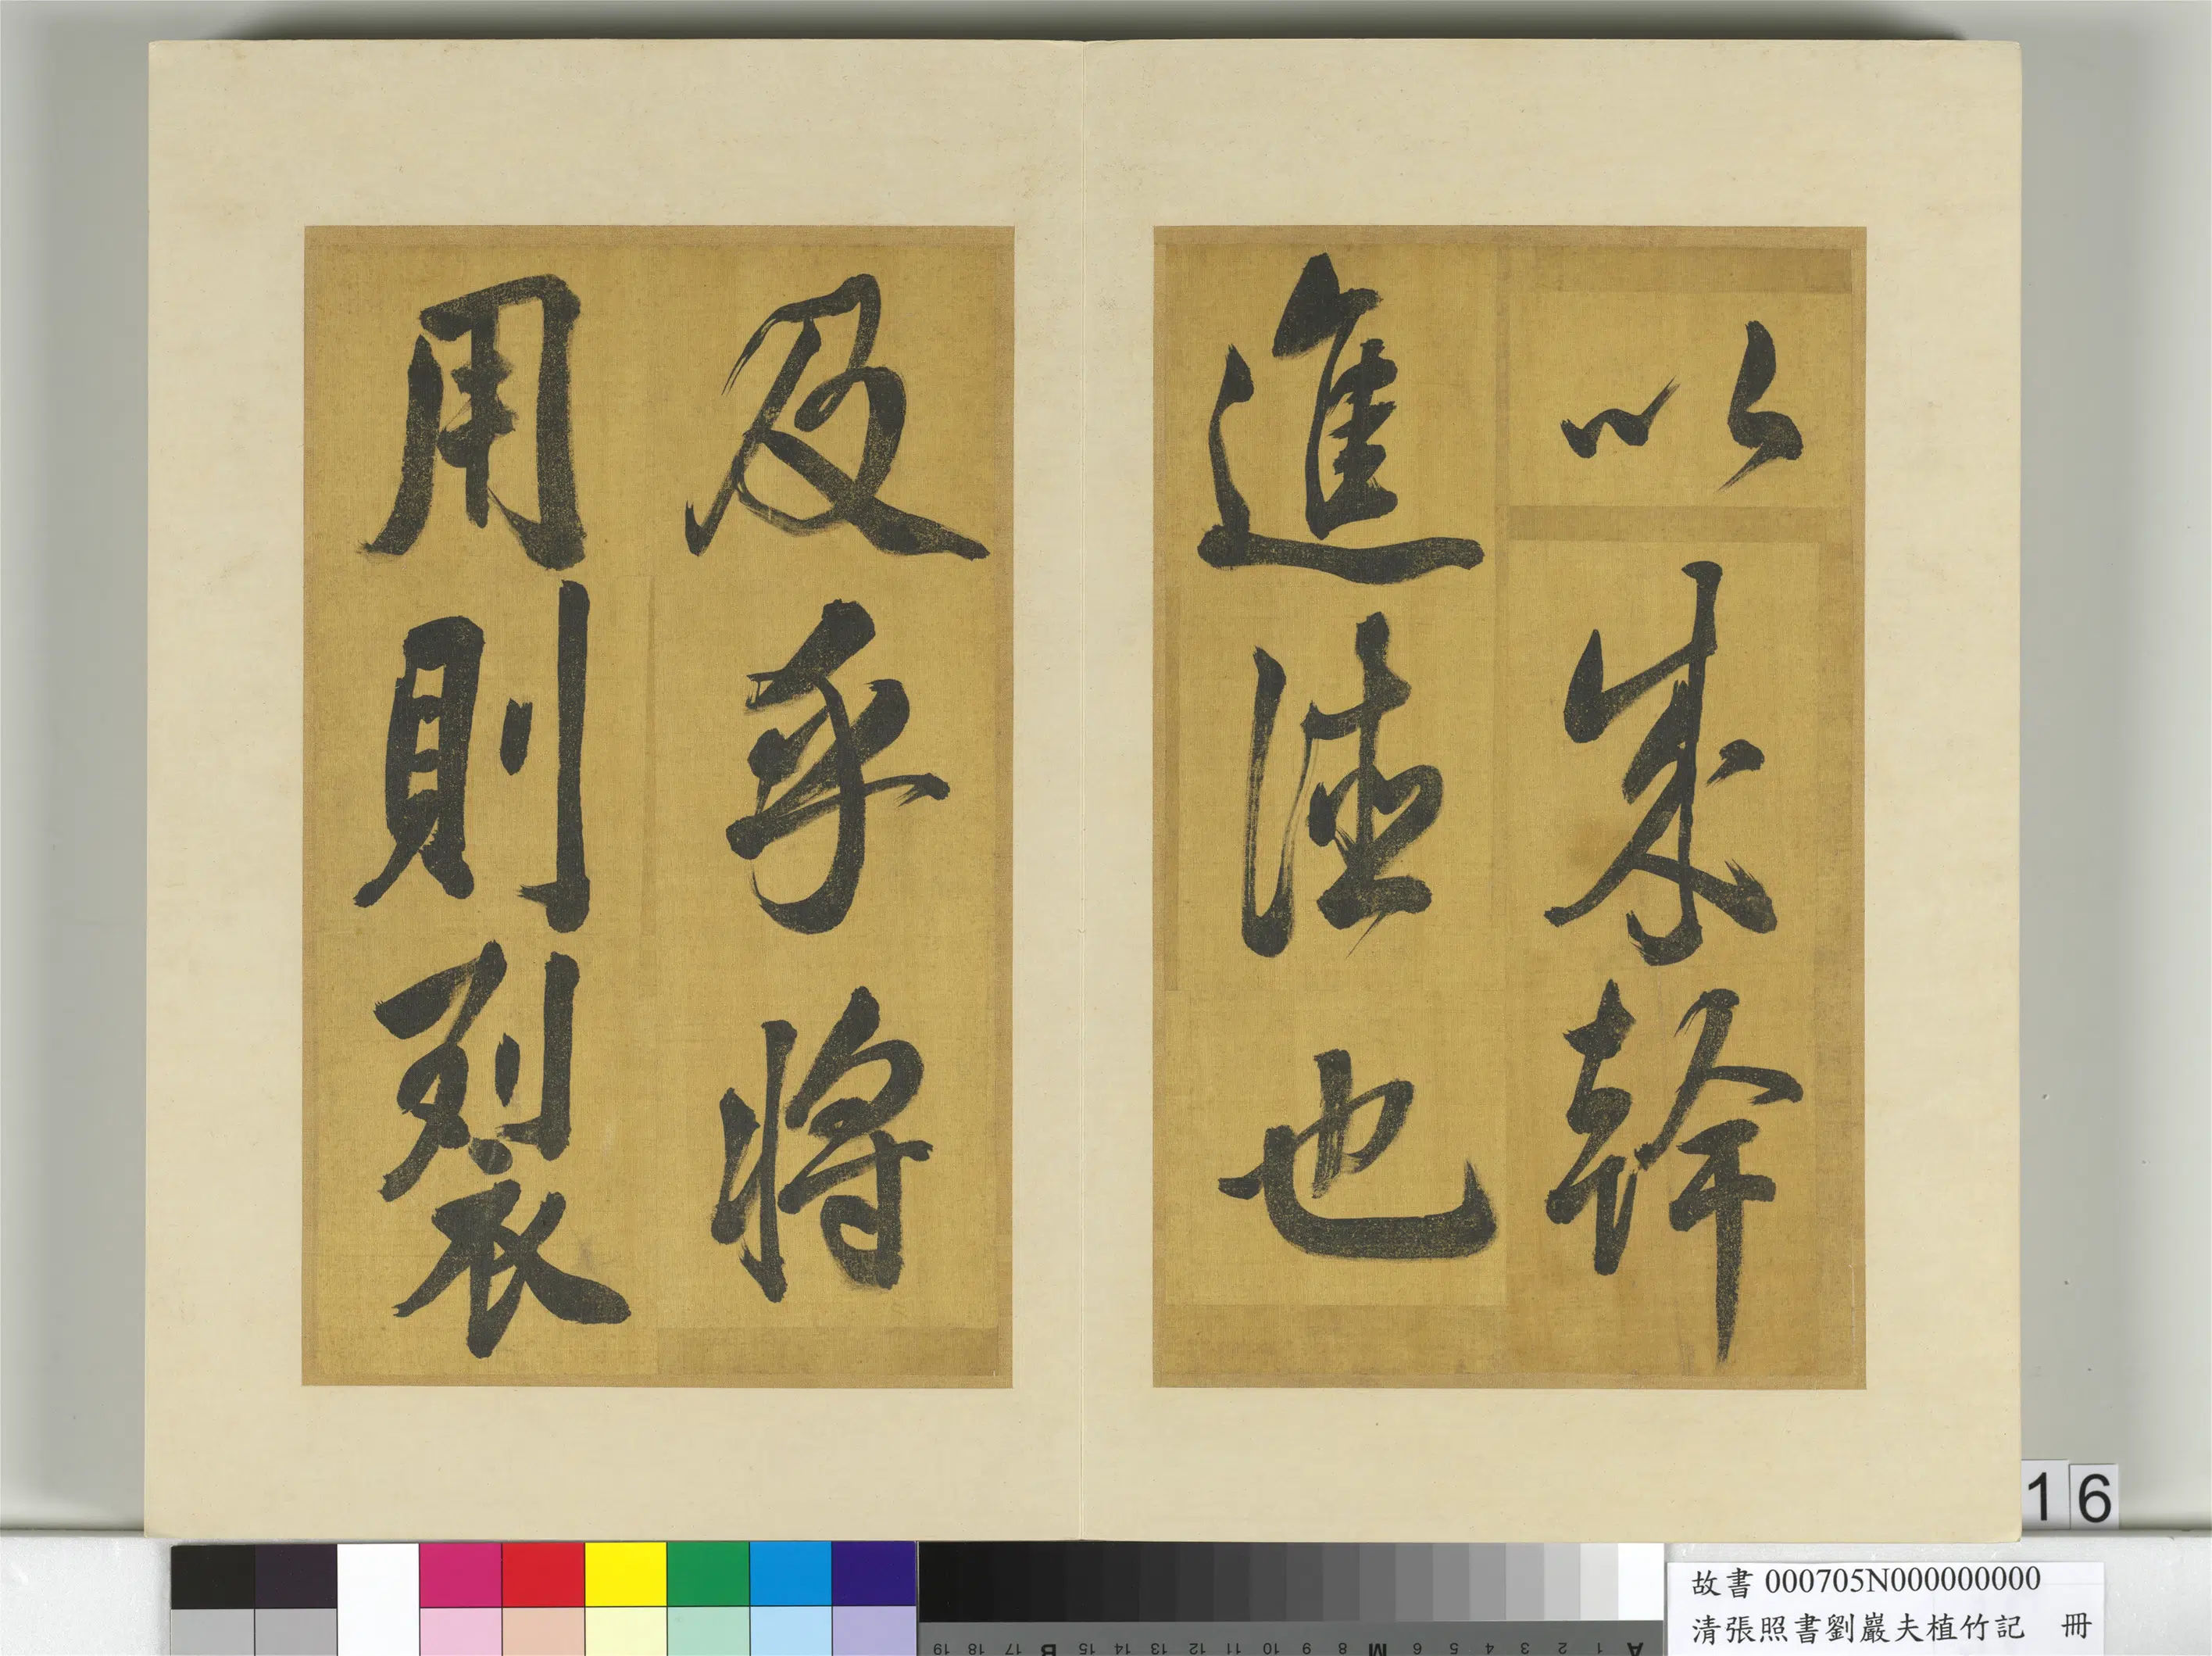 以成幹
進德也
及乎將
用則裂
16
故書 000705N000000000
清張照書劉巖夫植竹記 冊
A 1 2 3 4 5 6 M 8 9 10 11 12 13 14 15 B 17 18 19